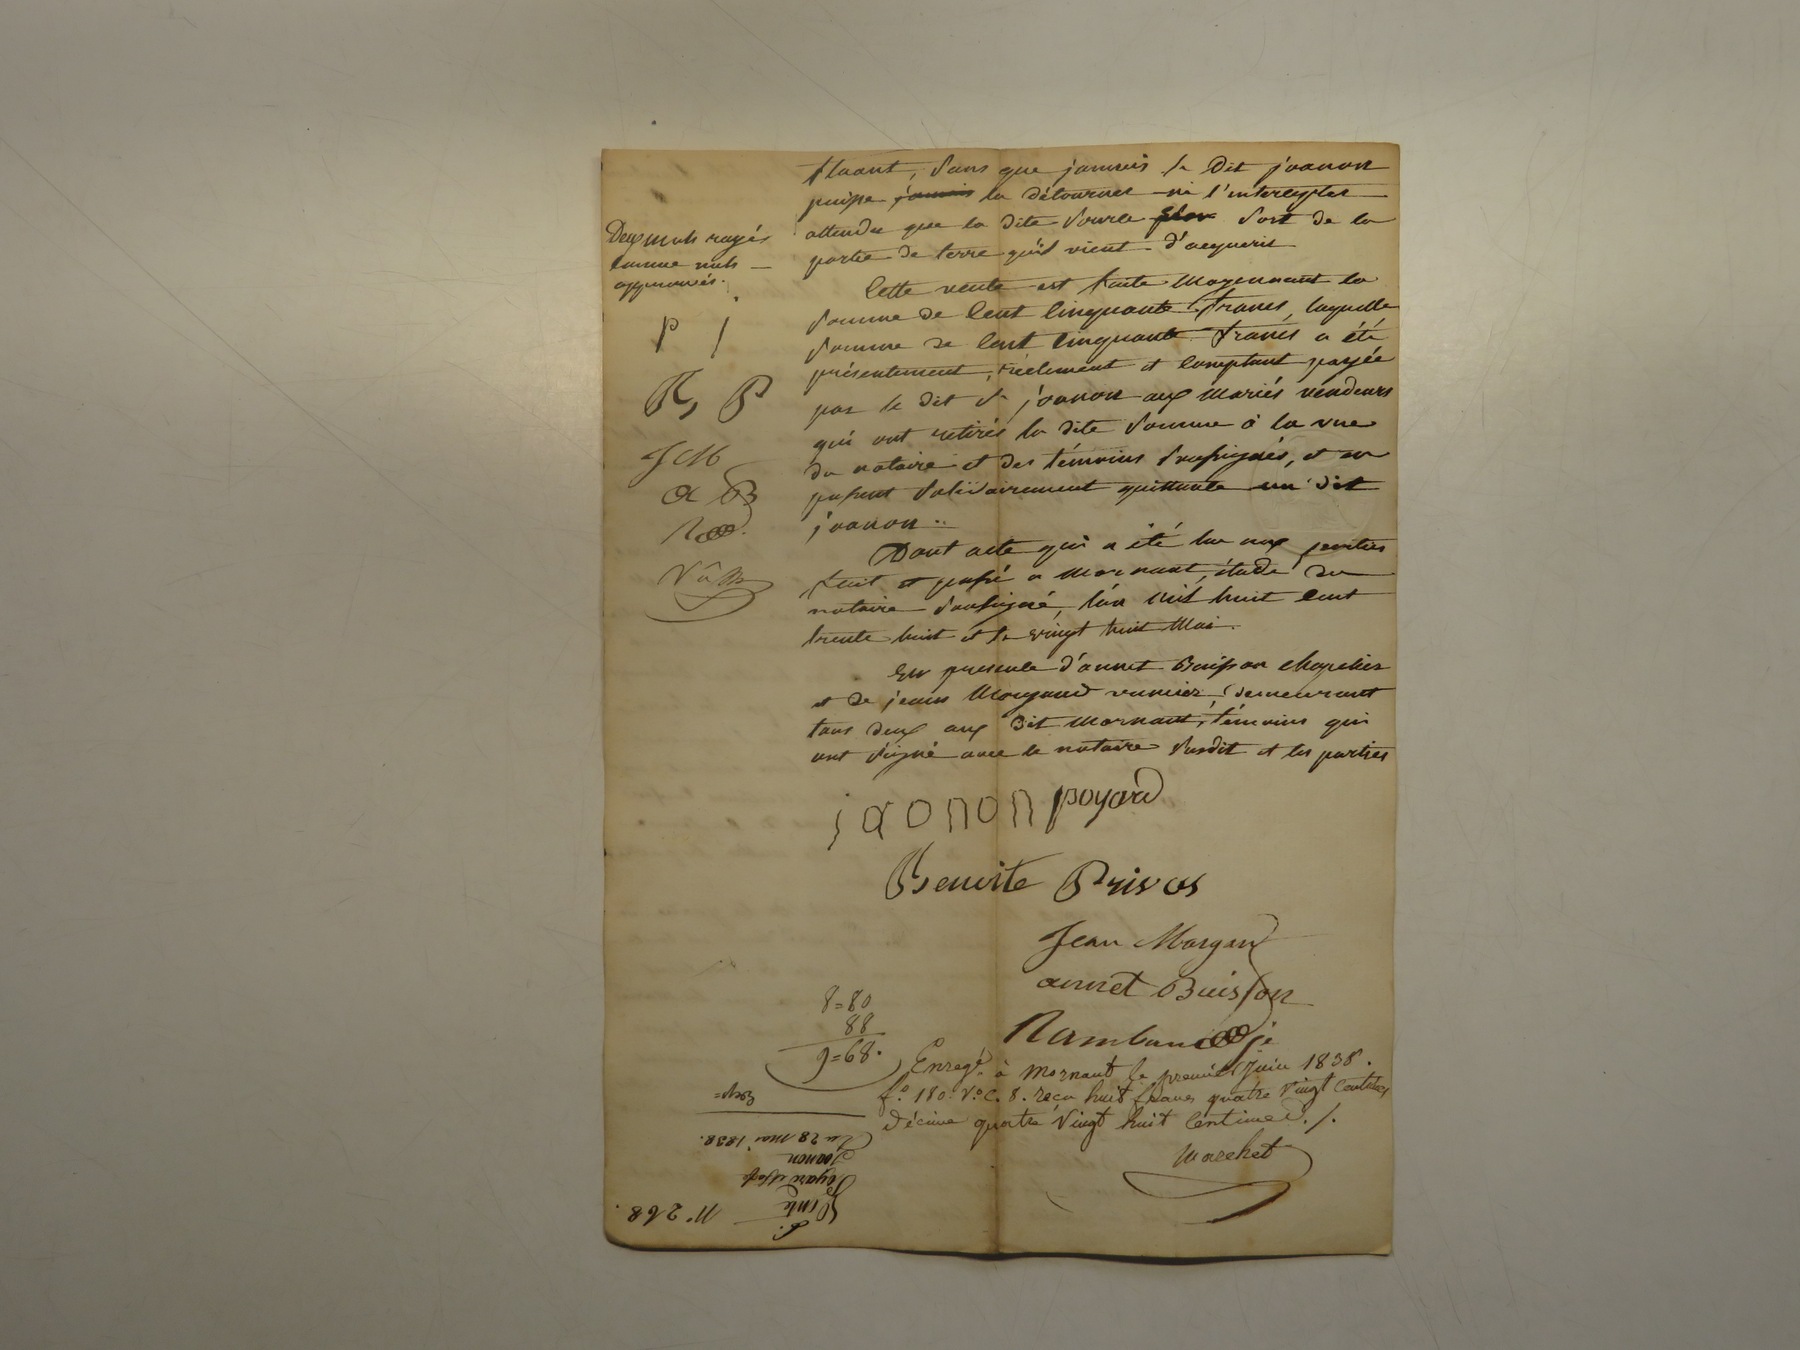 fluant, sans que jamais le Dit joanon
puisse jamais la détourner ni l'intercepter
attendu que la dite source sort de la
partie de terre qu'il vient d'acquérir
Cette vente est faite Moyennant la
somme de Cent Cinquante francs, laquelle
somme de Cent Cinquante francs a été
présentement, réelement et comptant payée
par le dit Sr joanon aux Mariés vendeurs
qui ont retirés la dite somme à la vue
du notaire et des témoins soussignés, et en
passent solidairement quittance au dit
joanon
Dont acte qui a été lu aux parties
fait et passé a Mornant, étude du
notaire soussigné, l'an Mil huit Cent
trente huit et le vingt huit Mai.
En presence d'annet Buisson Chapelier
et de jean Morgand vannier, demeurant
tous deux aux Dit Mornant, témoins qui
ont signé avec le notaire susdit et les parties
Deux mots rayés
comme nuls
approuvés.
P j
B, P
J M
a B
joanon poyard
Benoite Privas
Jean Morgand
annet Buisson
8=80
88
9=68.
Enregé à Mornant le premier Juin 1838.
f.o 180. Vo C. 8. reçu huit francs quatre Vingt Centimes
Décime quatre Vingt huit Centimes. /.
Marchet
No 268.
Vente
Poyard
Joanon
Du 28 mai 1838.